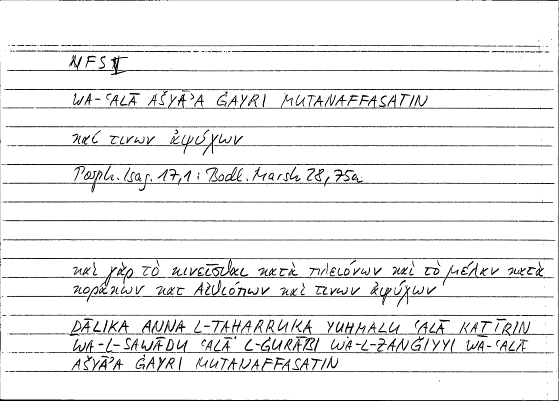 NFS V
WA-ʿALĀ AŠYĀʾA ĠAYRI MUTANAFFASATIN
καί τινων ἀψύχων
Porph. Isag. 17,1 : Bodl. Marsh 28, 75a
καὶ γὰρ τὸ κινεῖσθαι κατὰ πλειόνων καὶ τὸ μέλαν κατὰ
κοράκων κατ Αἰθιόπων καί τινων ἀψύχων
ḎĀLIKA ANNA L-TAHARRUKA YUHMALU ʿALĀ KAṮĪRIN
WA-L-SAWĀDU ʿALĀ L-ĠURĀBI WA-L-ZANǦIYYI WA-ʿALĀ
AŠYĀʾA ĠAYRI MUTANAFFASATIN